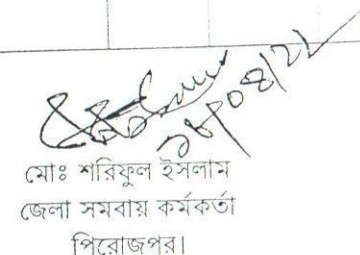 মোঃ শরিফুল ইসলাম
জেলা সমবায় কর্মকর্তা
পিরোজপুর।